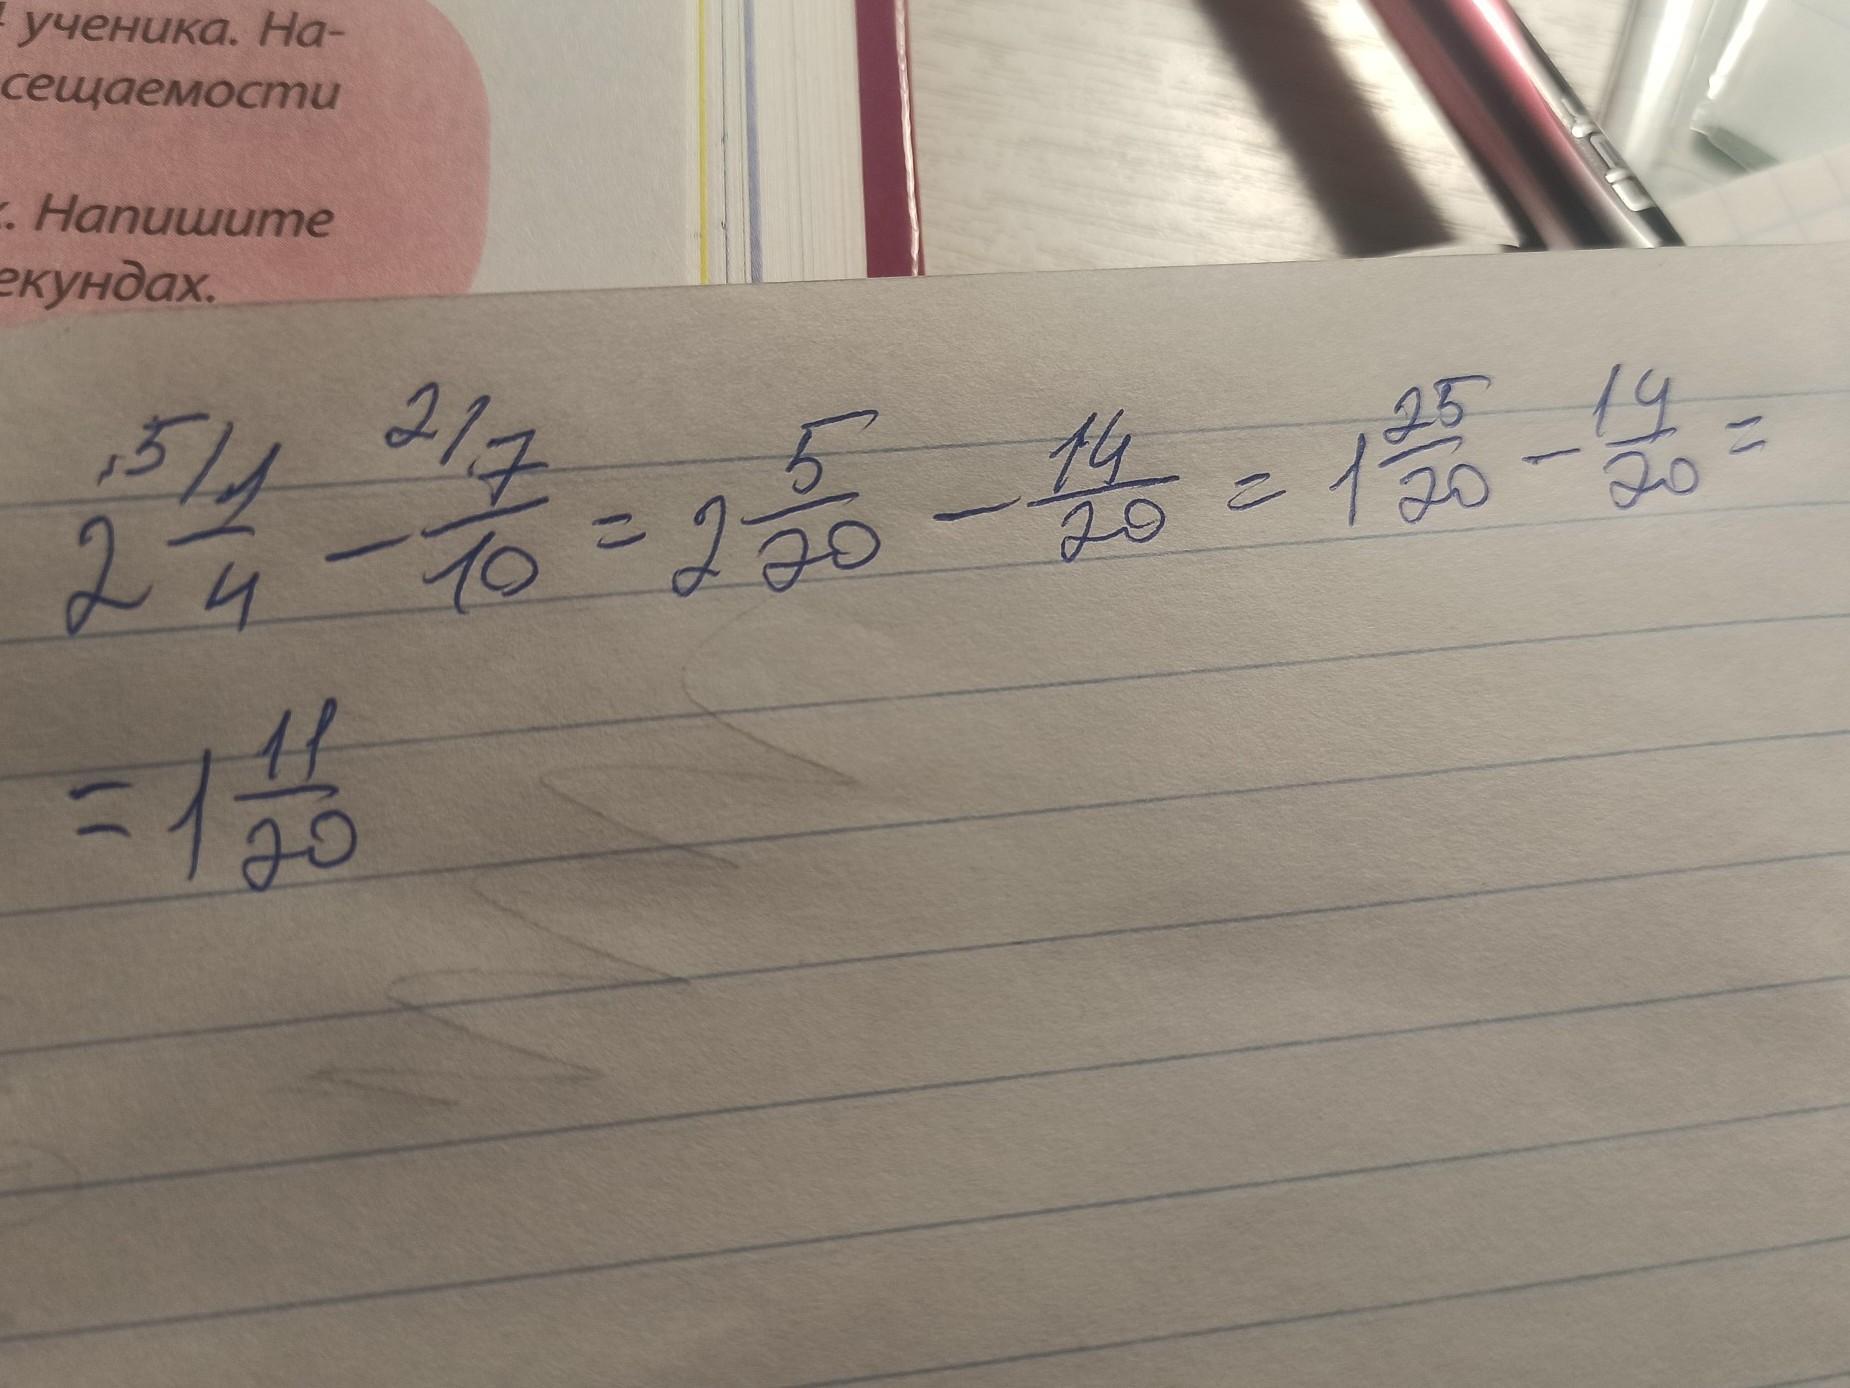 ученика. На-
сещаемости
. Напишите
екундах.
2 5/1/4 - 2/7/10 = 2 5/20 - 14/20 = 1 25/20 - 14/20 =
= 1 11/20